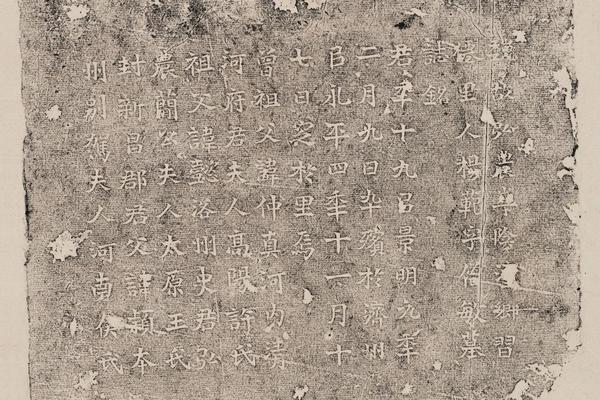 魏故弘農華陰潼鄉習
僊里人楊範字僧敏墓
誌銘
君年十九以景明元年
二月九日卒殯於濟州
以永平四年十一月十
七日窆於里焉
曾祖父諱仲真河内清
河府君夫人高陽許氏
祖父諱懿洛州史君弘
農蕳公夫人太原王氏
封新昌郡君父諱穎本
州别駕夫人河南侯氏